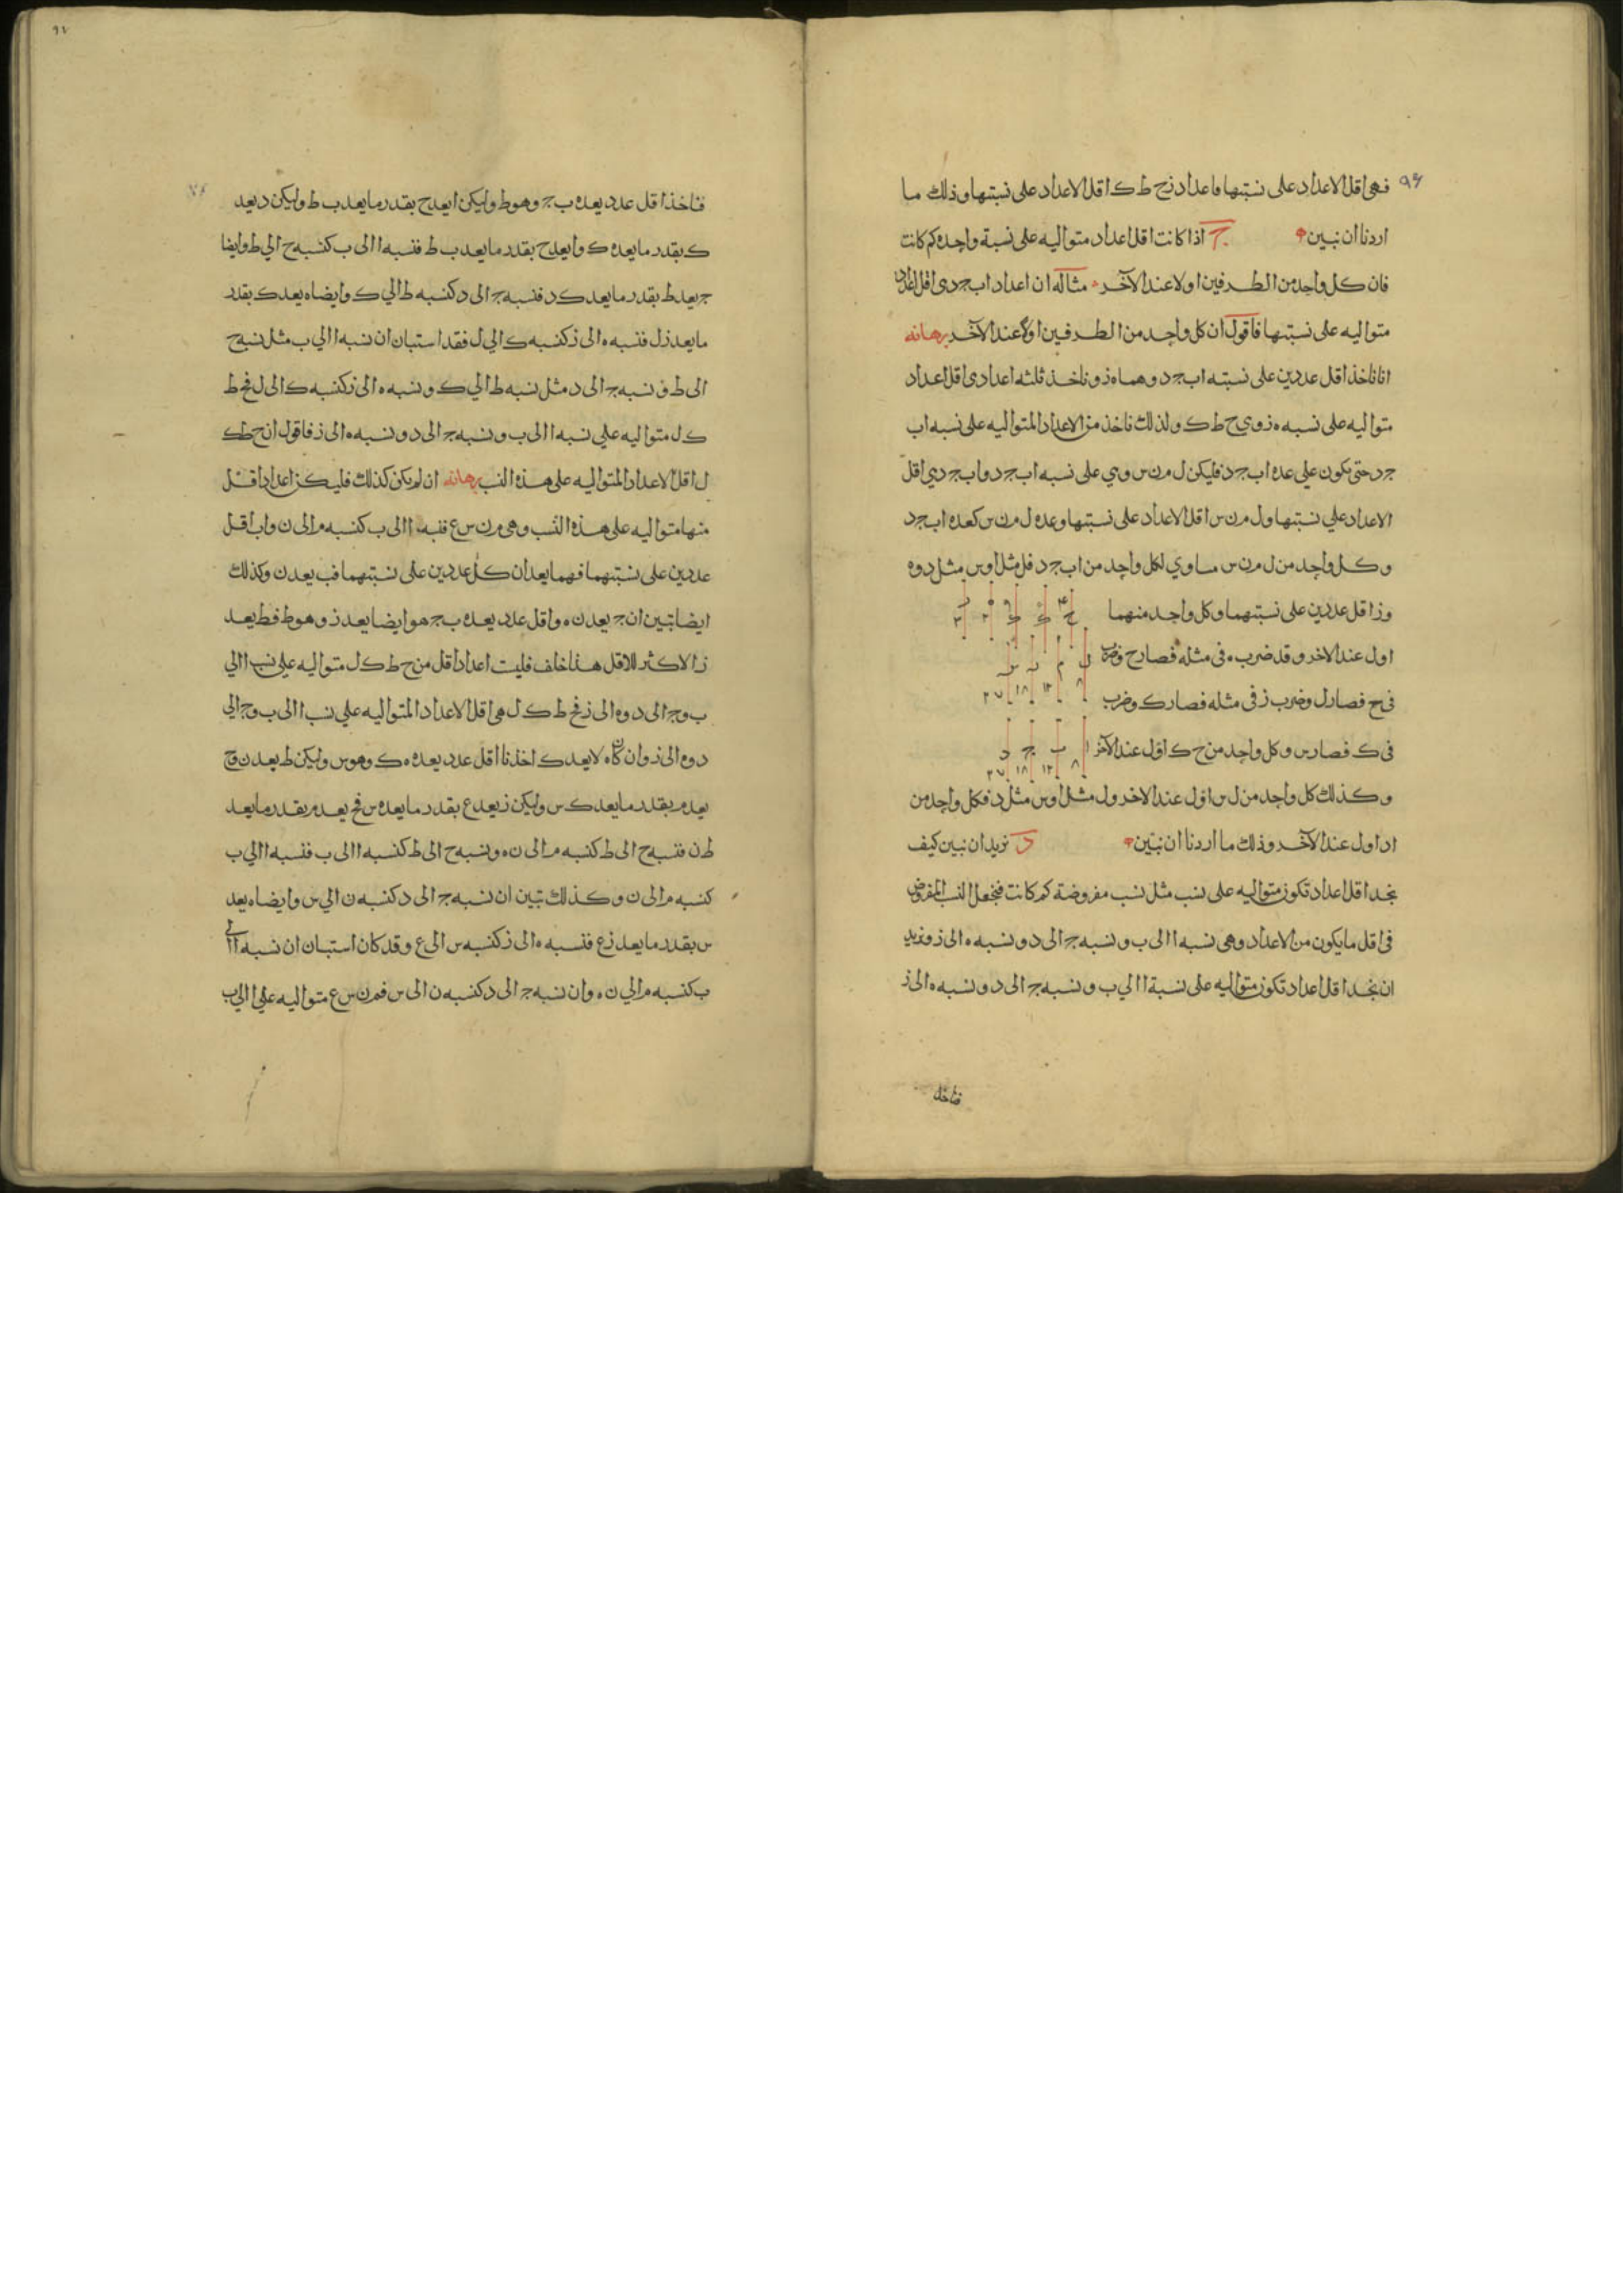 ٩٦
فهى اقل الاعداد على نسبتها فاعداد زح ط ك اقل الاعداد على نسبتها وذلك ما
اردنا ان نبين ج اذا كانت اقل اعداد متواليه على نسبة واحده كم كانت
فان كل واحد من الطرفين اولا عند الآخر مثاله ان اعداد اب ج د ى اقل اعداد
متواليه على نسبتها فاقول ان كل واحد من الطرفين اولا عند الآخر برهانه
انا ناخذ اقل عددين على نسبته اب ج د وهما ه ز وناخذ ثلثه اعداد ى اقل اعداد
متواليه على نسبه ه ز وي ح ط ك ولذلك ناخذ من الاعداد المتواليه على نسبه اب
ج د حتى يكون علي عده اب ج د فليكن ل م ن س وي على نسبه اب ج د واب ج د ي اقل
الاعداد علي نسبتها ول م ن س اقل الاعداد على نسبتها وعده ل م ن س كعده اب ج د
وكل واحد من ل م ن س مساوي لكل واحد من اب ج د فل مثل ا وس مثل د وه
وز اقل عددين على نسبتهما وكل واحد منهما
ح ط ك ه ز
اول عند الاخر وقد ضرب ه فى مثله فصار ح وضرب
ل م ن س
٨ ١٢ ١٨ ٢٧
فى ح فصار ل وضرب ز فى مثله فصار ك وضرب
فى ك فصار س وكل واحد من ح ك اول عند الآخر
ا ب ج د
٨ ١٢ ١٨ ٢٧
وكذلك كل واحد من ل س اول عند الاخر ول مثل ا وس مثل د فكل واحد من
ا د اول عند الآخر وذلك ما اردنا ان نبين د نريد ان نبين كيف
نجد اقل اعداد تكون متواليه على نسب مثل نسب مفروضة كم كانت فنجعل النسب المفروض
فى اقل ما يكون من الاعداد وهى نسبه ا الى ب ونسبه ج الى د ونسبه ه الى ز ونريد
ان نجد اقل اعداد تكون متواليه على نسبة ا الي ب ونسبه ج الى د ونسبه ه الى ز
فناخذ
فناخذ اقل عدد يعده ب ج وهو ط وليكن ا يعد ح بقدر ما يعد ب ط وليكن د يعد
ك بقدر ما يعد ه ك وا يعد ح بقدر ما يعد ب ط فنسبه ا الى ب كنسبه ح الي ط وايضا
ج يعد ط بقدر ما يعد ك د فنسبه ج الى د كنسبه ط الي ك وايضا ه يعد ك بقدر
ما يعد ز ل فنسبه ه الى ز كنسبه ك الي ل فقد استبان ان نسبه ا الي ب مثل نسبه ح
الى ط ونسبه ج الى د مثل نسبه ط الي ك ونسبه ه الى ز كنسبه ك الى ل فح ط
ك ل متواليه علي نسبه ا الى ب ونسبه ج الى د ونسبه ه الى ز فاقول ان ح ط ك
ل اقل الاعداد المتواليه على هذه النسب برهانه ان لم يكن كذلك فليكن اعداد اقل
منها متواليه على هذه النسب وهى م ن س ع فنسبه ا الى ب كنسبه م الى ن واب اقل
عددين على نسبتهما فهما يعدان كل عددين على نسبتهما فب يعد ن وكذلك
ايضا تبين ان ج يعد ن ه واقل عدد يعده ب ج هو ايضا يعد ن وهو ط فط يعد
ن الاكثر للاقل هذا خلف فليست اعداد اقل من ح ط ك ل متواليه علي نسب ا الي
ب وج الى د وه الى ز فح ط ك ل هى اقل الاعداد المتواليه علي نسب ا الى ب وج الي
د وه الى ز وان كان ه لا يعد ك اخذنا اقل عدد يعده ه ك وهو س وليكن ط يعد ن وح
يعد م بقدر ما يعد ك س وليكن ز يعد ع بقدر ما يعد ه س فح يعد م بقدر ما يعد
ط ن فنسبه ح الى ط كنسبه م الى ن ه ونسبه ح الى ط كنسبه ا الى ب فنسبه ا الي ب
كنسبه م الى ن وكذلك تبين ان نسبه ج الى د كنسبه ن الي س وايضا ه يعد
س بقدر ما يعد ز ع فنسبه ه الى ز كنسبه س الى ع وقد كان استبان ان نسبه ا الى
ب كنسبه م الي ن ه وان نسبه ج الى د كنسبه ن الى س فم ن س ع متواليه علي ا الى ب